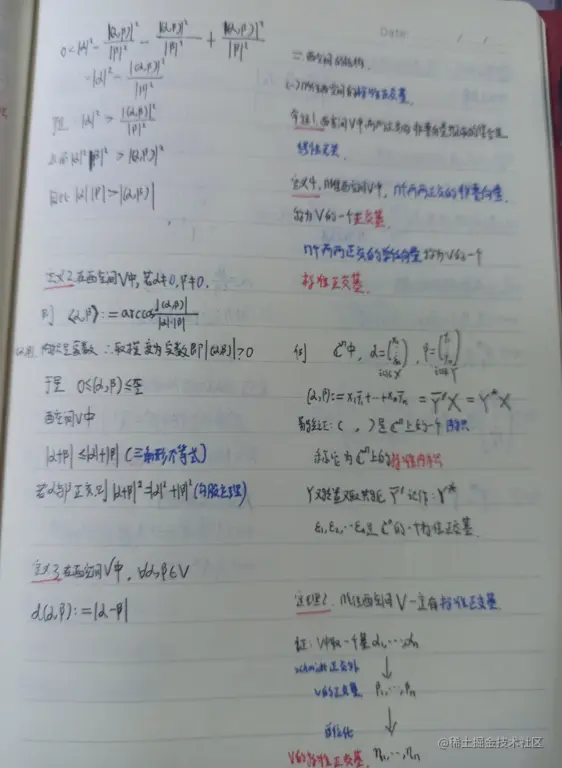 0<|α|²-|(α,β)|²/|β|²-|(α,β)|²/|β|²+|(α,β)|²/|β|²
=|α|²-|(α,β)|²/|β|²
即 |α|²>|(α,β)|²/|β|²
|α|²|β|²>|(α,β)|²
|α||β|>|(α,β)|
定义2.在酉空间V中,若α≠0,β≠0.
则 〈α,β〉:=arccos|(α,β)|/|α||β|
∴取模变为实数即|(α,β)|≥0
于是 0≤〈α,β〉≤π/2
酉空间V中
|α+β|≤|α|+|β| (三角形不等式)
若α与β正交,则|α+β|²=|α|²+|β|²(勾股定理)
定义3.在酉空间V中,∀α,β∈V
d(α,β):=|α-β|
Date / /
二.酉空间的结构.
(一)n维酉空间的标准正交基.
命题1.酉空间V中两两正交的非零向量组成的集合是
线性无关.
定义4.n维酉空间V中,n个两两正交的非零向量.
称为V的一个正交基.
n个两两正交的单位向量称为V的一个
标准正交基.
例 Cⁿ中,
(α,β):=x₁ȳ₁+…+xₙȳₙ=Ȳ'X=Y*X
( , )是Cⁿ上的一个内积
称它为Cⁿ上的标准内积
Ȳ'记作:Y*
ε₁,ε₂,…εₙ是Cⁿ的一个标准正交基.
定理2. n维酉空间V一定有标准正交基.
证:V中取一个基α₁,…,αₙ
schmidt正交化
V的正交基 β₁,…,βₙ
单位化
V的标准正交基 η₁,…,ηₙ
@稀土掘金技术社区